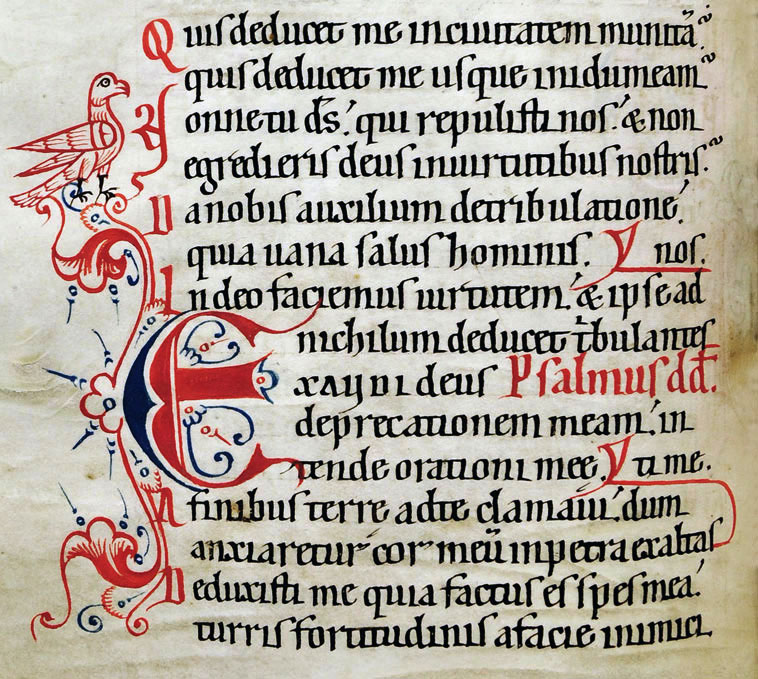 Quis deducet me inciuitatem munitā?
quis deducet me usque inidumeam?
Nonne tu d̄s. qui repulisti nos. & non
egredieris deus inuirtutibus nostris.
Da nobis auxilium detribulatione.
quia uana salus hominis. nos.
In deo faciemus uirtutem. & ipse ad
nichilum deducet tͥbulantes
Exaudi deus Psalmus dd̄.
deprecationem meam. in
tende orationi mee. ti me.
A finibus terre adte clamaui. dum
anxiaretur cor meū inpetra exaltas
Deduxisti me quia factus es spes mea.
turris fortitudinis afacie inimici